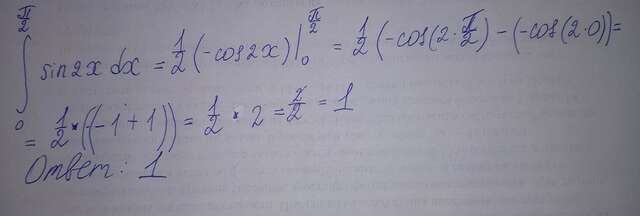 ∫₀^(π/2) sin2x dx = 1/2 (-cos2x)|₀^(π/2) = 1/2 (-cos(2·π/2) - (-cos(2·0)) =
= 1/2 * ((-1+1)) = 1/2 * 2 = 2/2 = 1
Ответ: 1